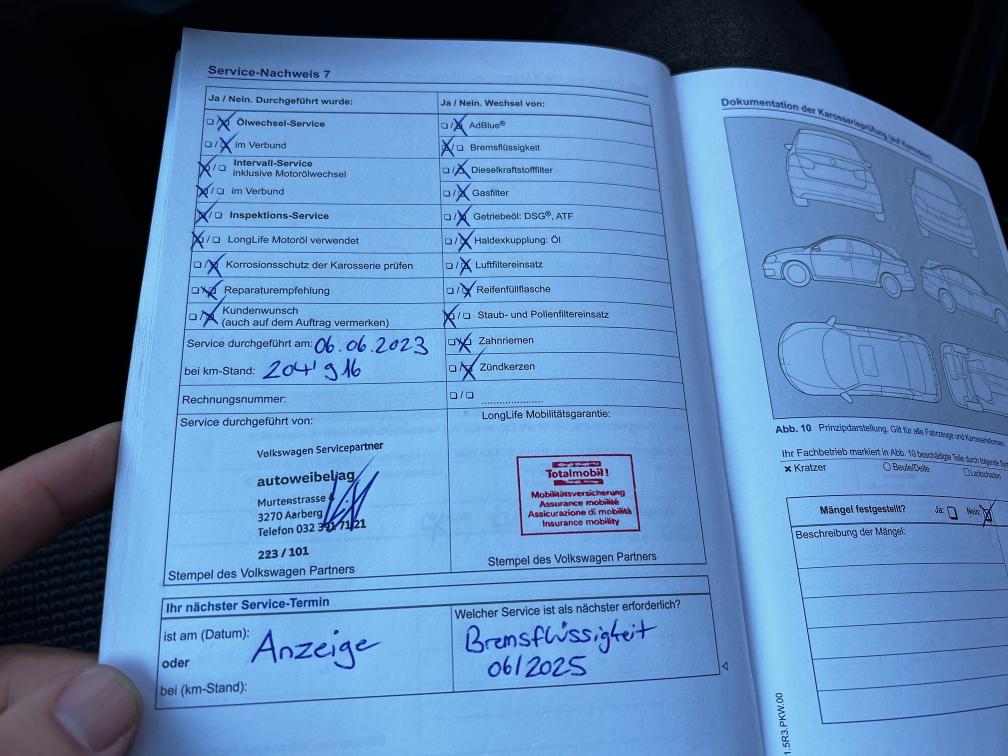 Service-Nachweis 7
Ja / Nein. Durchgeführt wurde:
Ölwechsel-Service
im Verbund
Intervall-Service
inklusive Motorölwechsel
im Verbund
Inspektions-Service
LongLife Motoröl verwendet
Korrosionsschutz der Karosserie prüfen
Reparaturempfehlung
Kundenwunsch
(auch auf dem Auftrag vermerken)
Service durchgeführt am: 06.06.2023
bei km-Stand: 204'916
Rechnungsnummer:
Ja / Nein. Wechsel von:
AdBlue®
Bremsflüssigkeit
Dieselkraftstofffilter
Gasfilter
Getriebeöl: DSG®, ATF
Haldexkupplung: Öl
Luftfiltereinsatz
Reifenfüllflasche
Staub- und Pollenfiltereinsatz
Zahnriemen
Zündkerzen
Service durchgeführt von:
Volkswagen Servicepartner
autoweibel ag
Murtenstrasse
3270 Aarberg
Telefon 032 391 71 21
223 / 101
Stempel des Volkswagen Partners
LongLife Mobilitätsgarantie:
Totalmobil!
Mobilitätsversicherung
Assurance mobilité
Assicurazione di mobilità
Insurance mobility
Stempel des Volkswagen Partners
Ihr nächster Service-Termin
ist am (Datum):
oder
bei (km-Stand):
Anzeige
Welcher Service ist als nächster erforderlich?
Bremsflüssigkeit
06/2025
Dokumentation der Karosserieprüfung (auf Korrosion)
Abb. 10 Prinzipdarstellung. Gilt für alle Fahrzeuge und Karosserieformen.
Ihr Fachbetrieb markiert in Abb. 10 beschädigte Teile durch folgende
Kratzer
Beule/Delle
Lackschaden
Mängel festgestellt? Ja: Nein:
Beschreibung der Mängel:
1.5R3.PKW.00